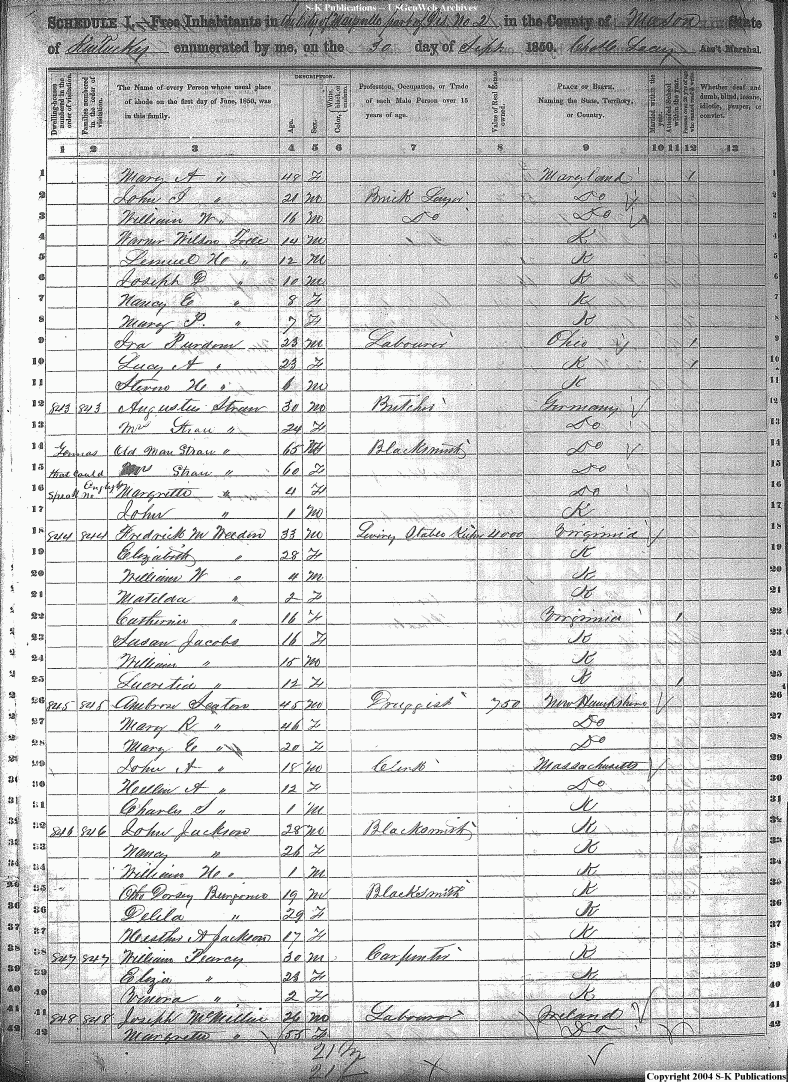 S-K Publications - USGenWeb Archives
SCHEDULE I.—Free Inhabitants in the City of Maysville part of Dis. No 2 in the County of Mason State
of Kentucky enumerated by me, on the 30 day of Sept 1850. Ass't Marshal.
Dwelling-houses numbered in the order of visitation.
Families numbered in the order of visitation.
The Name of every Person whose usual place of abode on the first day of June, 1850, was in this family.
DESCRIPTION.
Age.
Sex.
Color, White, black, or mulatto.
Profession, Occupation, or Trade of each Male Person over 15 years of age.
Value of Real Estate owned.
PLACE OF BIRTH. Naming the State, Territory, or Country.
Married within the year.
Attended School within the year.
Whether deaf and dumb, blind, insane, idiotic, pauper, or convict.
1 2 3 4 5 6 7 8 9 10 11 12 13
1 Mary A " 48 F Maryland 1 1
2 John " 21 m Brick Layer Do 2
3 William W " 16 m Do Do 3
4 Warner Wilson 14 m K 4
5 Lemuel H " 12 m K 5
6 Joseph D " 10 m K 6
7 Nancy E " 8 F K 7
8 Mary P. " 7 F K 8
9 Ira Purdom 23 m Labourer Ohio 1 9
10 Lucy A " 23 F K 1 10
11 H " 6 m K 11
12 843 843 Augustus Straw 30 m Butcher Germany 12
13 Mrs Straw " 24 F Do 13
14 Germas Old Man Straw " 65 M Blacksmith Do 14
15 that could Mrs Straw " 60 F Do 15
16 Speak No English Margrette " 4 F Do 16
17 John " 1 m K 17
18 844 844 Fredrick M Weedon 33 m Livery Stable Keeper 4000 Virginia 18
19 Elizabeth " 28 F K 19
20 William W " 4 m K 20
21 Matilda " 2 F K 21
22 Catherine " 16 F Virginia 1 22
23 Susan Jacobs 16 F K 23
24 William " 15 m K 24
25 Lucretia " 12 F K 1 25
26 845 845 Ambrose Seaton 45 m Druggist 750 New Hampshire 26
27 Mary R " 46 F Do 27
28 Mary E " 20 F Do 28
29 John A " 18 m Clerk Massachusetts 29
30 Hellen A " 12 F Do 30
31 Charles S " 1 m K 31
32 846 846 John Jackson 28 m Blacksmith K 32
33 Nancy " 26 F K 33
34 William H " 1 m K 34
35 Dorsey 19 m Blacksmith K 35
36 Delila " 29 F K 36
37 A Jackson 17 F K 37
38 847 847 William Pearcy 30 m Carpenter K 38
39 Eliza " 23 F K 39
40 " 2 F K 40
41 848 848 Joseph McMillin 26 m Labourer Ireland 41
42 Margrette " 55 F Do 42
Copyright 2004 S-K Publications